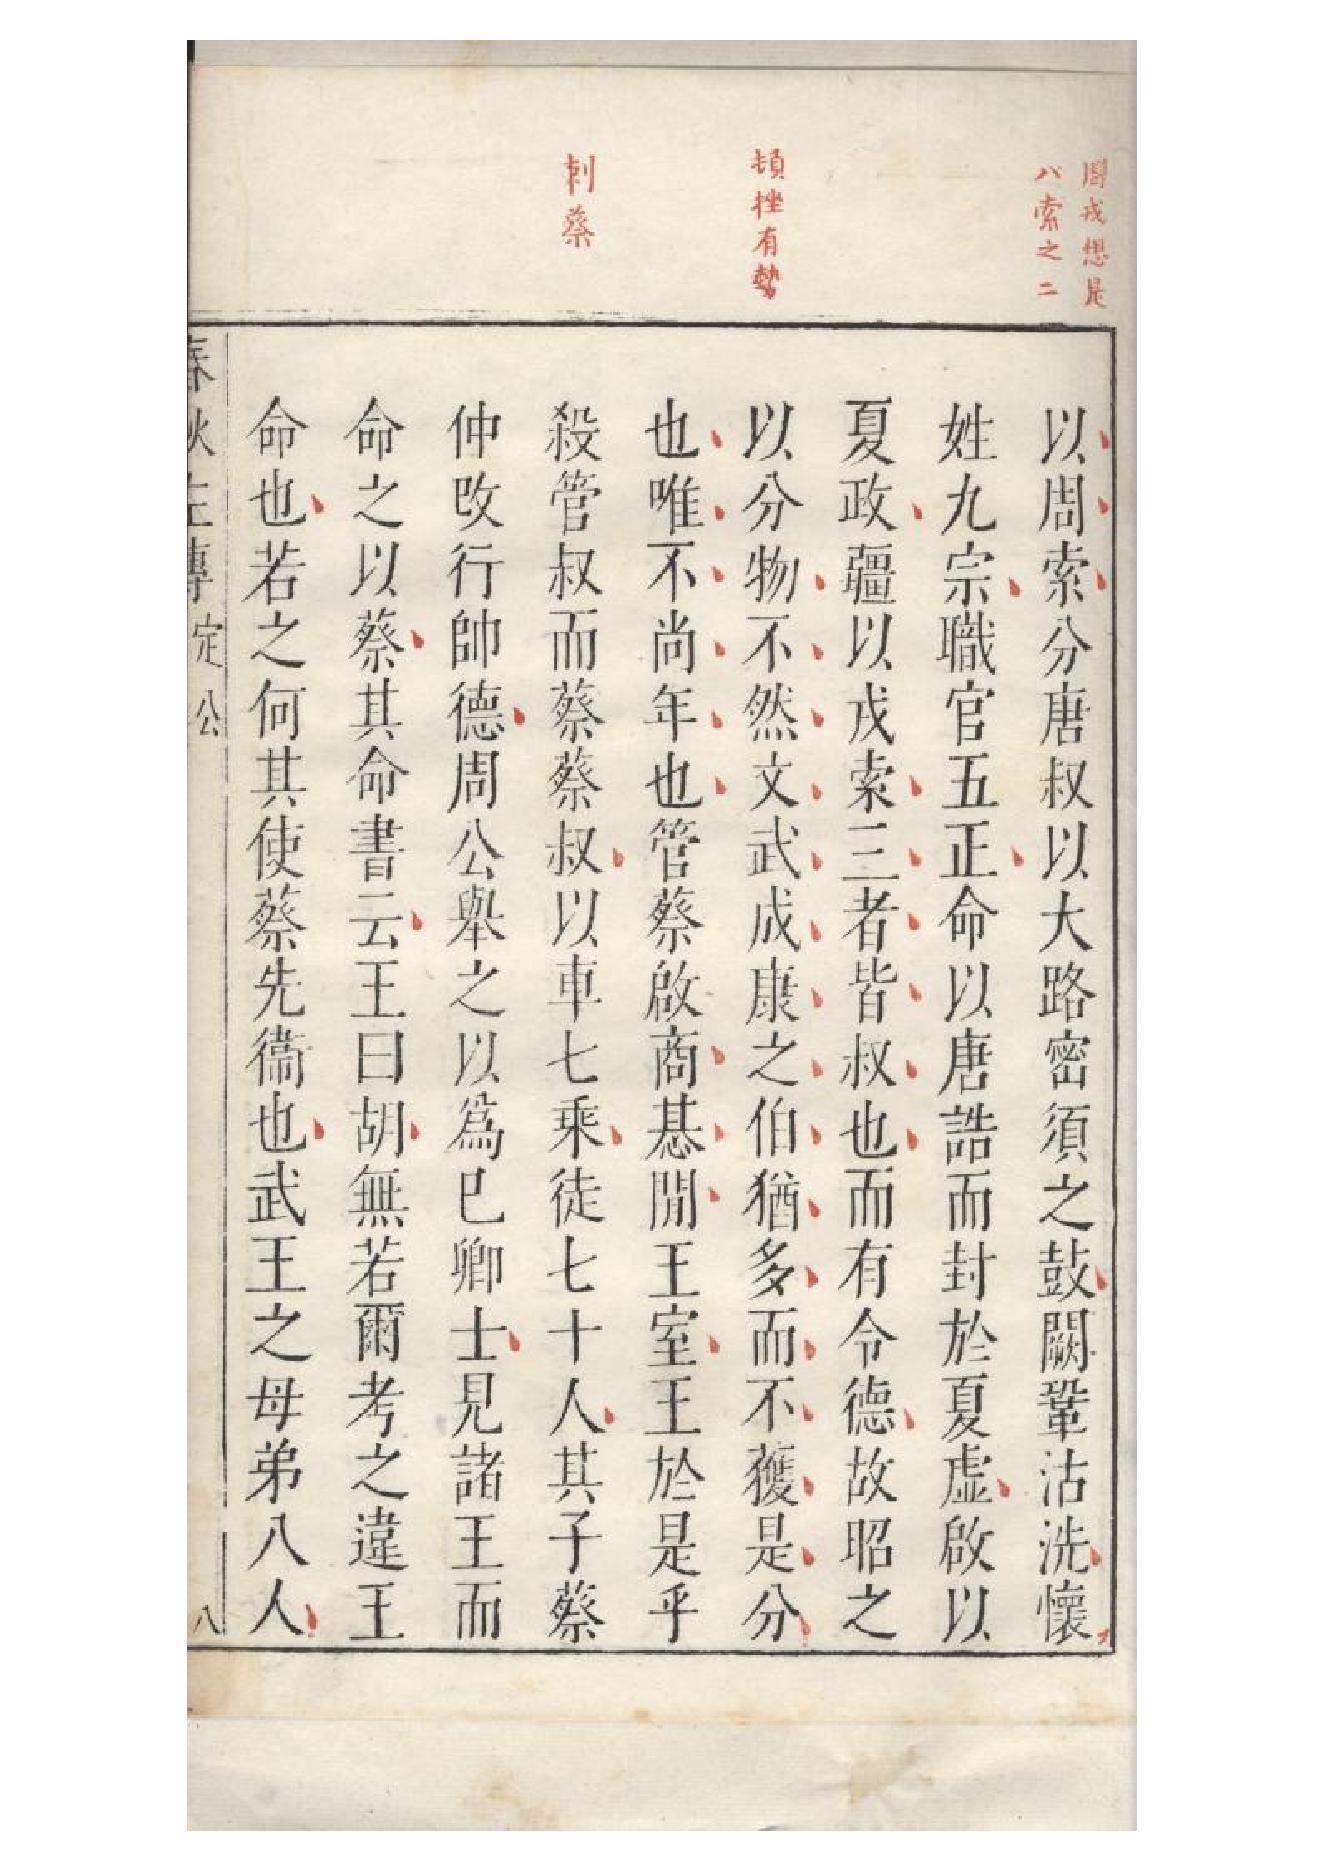 周戎想是
八索之二
頓挫有勢
刺蔡
以周索分唐叔以大路密須之鼓闕鞏沽洗懷
姓九宗職官五正命以唐誥而封於夏虛啟以
夏政疆以戎索三者皆叔也而有令德故昭之
以分物不然文武成康之伯猶多而不獲是分
也唯不尚年也管蔡啟商惎閒王室王於是乎
殺管叔而蔡蔡叔以車七乘徒七十人其子蔡
仲改行帥德周公舉之以爲已卿士見諸王而
命之以蔡其命書云王曰胡無若爾考之違王
命也若之何其使蔡先衞也武王之母弟八人
春秋左傳 定公 八